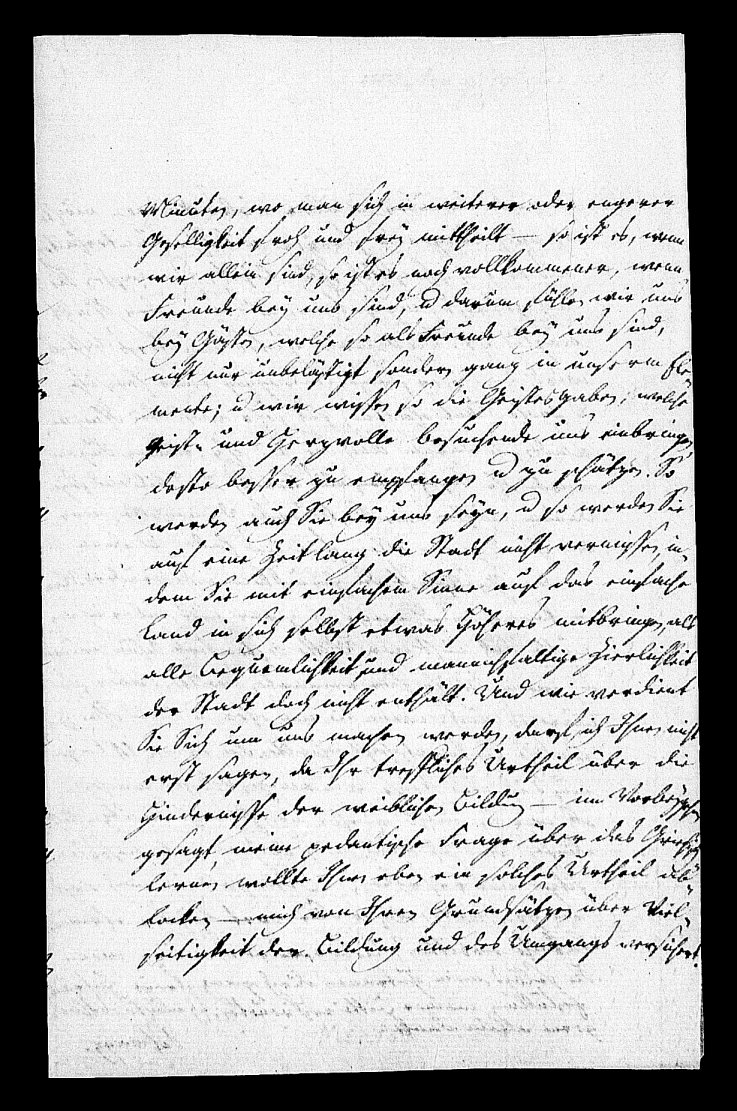 Minuten, wo man sich in weiterer oder engerer
Geselligkeit froh und frey mittheilt — so ist es, wenn
wir allein sind, so ist es noch vollkommener, wenn
Freunde bey uns sind, u darum fühlen wir uns
bey Gästen, welche so als Freunde bey uns sind,
nicht nur unbelästigt sondern ganz in unserm Ele-
mente; u wir wissen so die Geistesgaben, welche
Geist- und Herzvolle Besuchende uns einbringen
desto besser zu empfangen u zu schätzen. So
werden auch Sie bey uns seyn, u so werden Sie
auf eine Zeitlang die Stadt nicht vermissen, in-
dem Sie mit einfachem Sinne auf das einfache
Land in sich selbst etwas Höheres mitbringen, als
alle Bequemlichkeit und mannichfaltige Zierlichkeit
der Stadt doch nicht enthält. Und wie verdient
Sie Sich um uns machen werden, darf ich Ihnen nicht
erst sagen, da Ihr treffliches Urtheil über die
Hindernisse der weiblichen Bildung — im Vorbeygehen
gesagt, meine pedantische Frage über das Griechisch
lernen wollte Ihnen eben ein solches Urtheil ab-
locken — mich von Ihren Grundsätzen über Viel-
seitigkeit der Bildung und des Umgangs versichert.